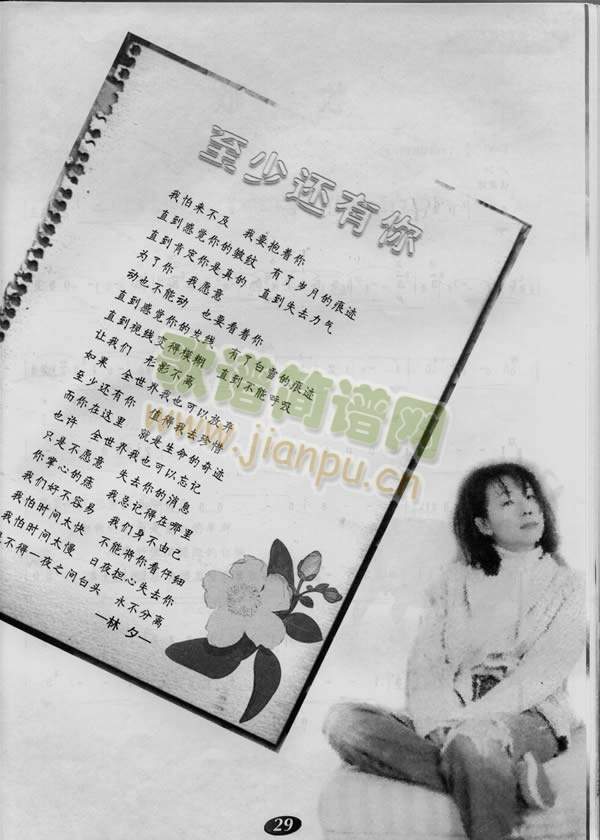 至少还有你
我怕来不及　我要抱着你
直到感觉你的皱纹　有了岁月的痕迹
直到肯定你是真的　直到失去力气
为了你　我愿意
动也不能动　也要看着你
直到感觉你的发线　有了白雪的痕迹
直到视线变得模糊　直到不能呼吸
让我们　形影不离
如果　全世界我也可以放弃
至少还有你　值得我去珍惜
而你在这里　就是生命的奇迹
也许　全世界我也可以忘记
只是不愿意　失去你的消息
你掌心的痣　我总记得在哪里
我们好不容易　我们身不由己
我怕时间太快　不能将你看仔细
我怕时间太慢　日夜担心失去你
不得一夜之间白头　永不分离
—林 夕—
歌谱简谱网
www.jianpu.cn
29